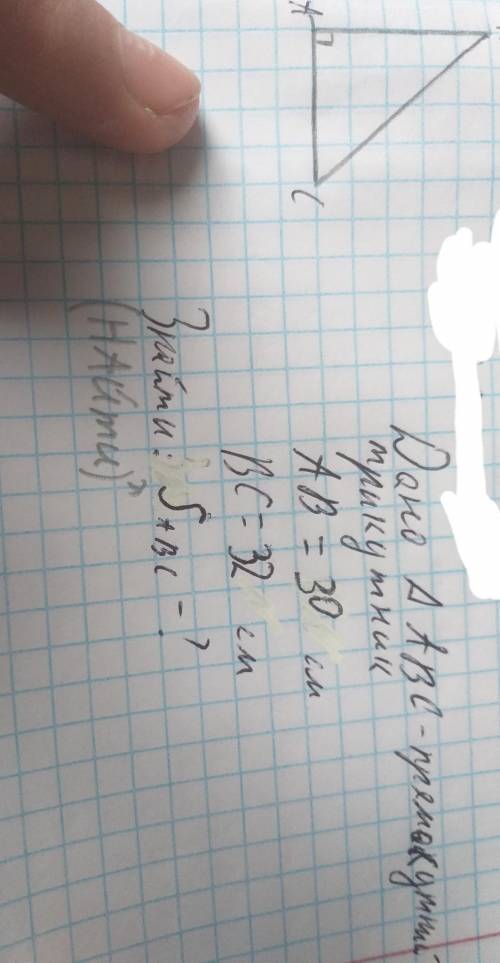 A
C
Дано Δ ABC - прямокутний
трикутник
AB = 30 см
BC = 32 см
Знайти: S ABC - ?
(НАйти)